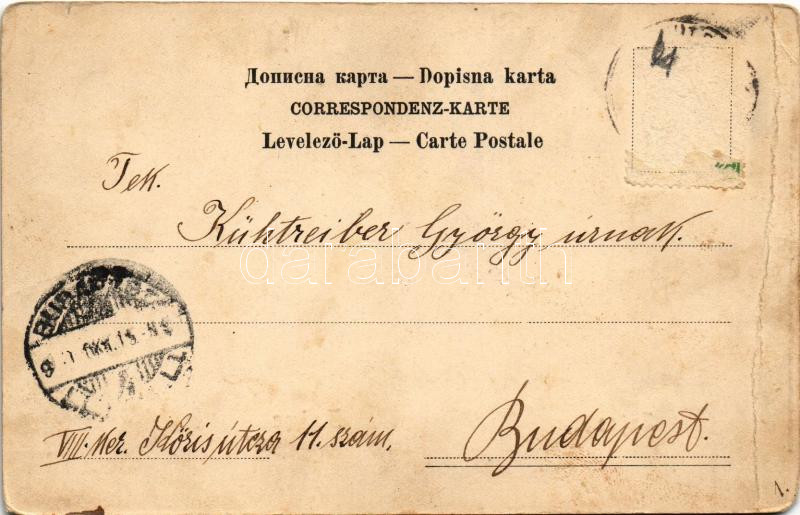 Дописна карта — Dopisna karta
CORRESPONDENZ-KARTE
Levelezö-Lap — Carte Postale
Tek.
Kühtreiber György úrnak.
darabanth
BUDAPEST
VIII. ker. Kőris útcza 11. szám.
Budapest.
1.